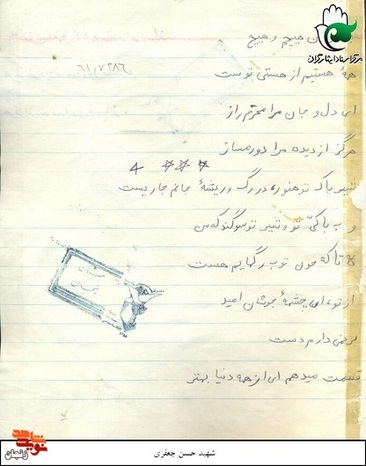 مرکز اسناد ایثارگران
هیچم و هیچ
۶۱,۷۲۸۶
همهٔ هستیم از هستی توست
ای دل و جان مرا محرم راز
هرگز از دیده مرا دور مساز
۴
پاک تو هنوز، در رگ و ریشهٔ جانم جاریست
و به پاکی تو و تو سوگند که من
تا که خون تو برگهایم هست
از تو، ای چشمهٔ جوشان امید
دارم دست
قسمت میدهم ای از همه دنیا بهتر
۷
نوید شاهد
زنجان
شهید حسن جعفری